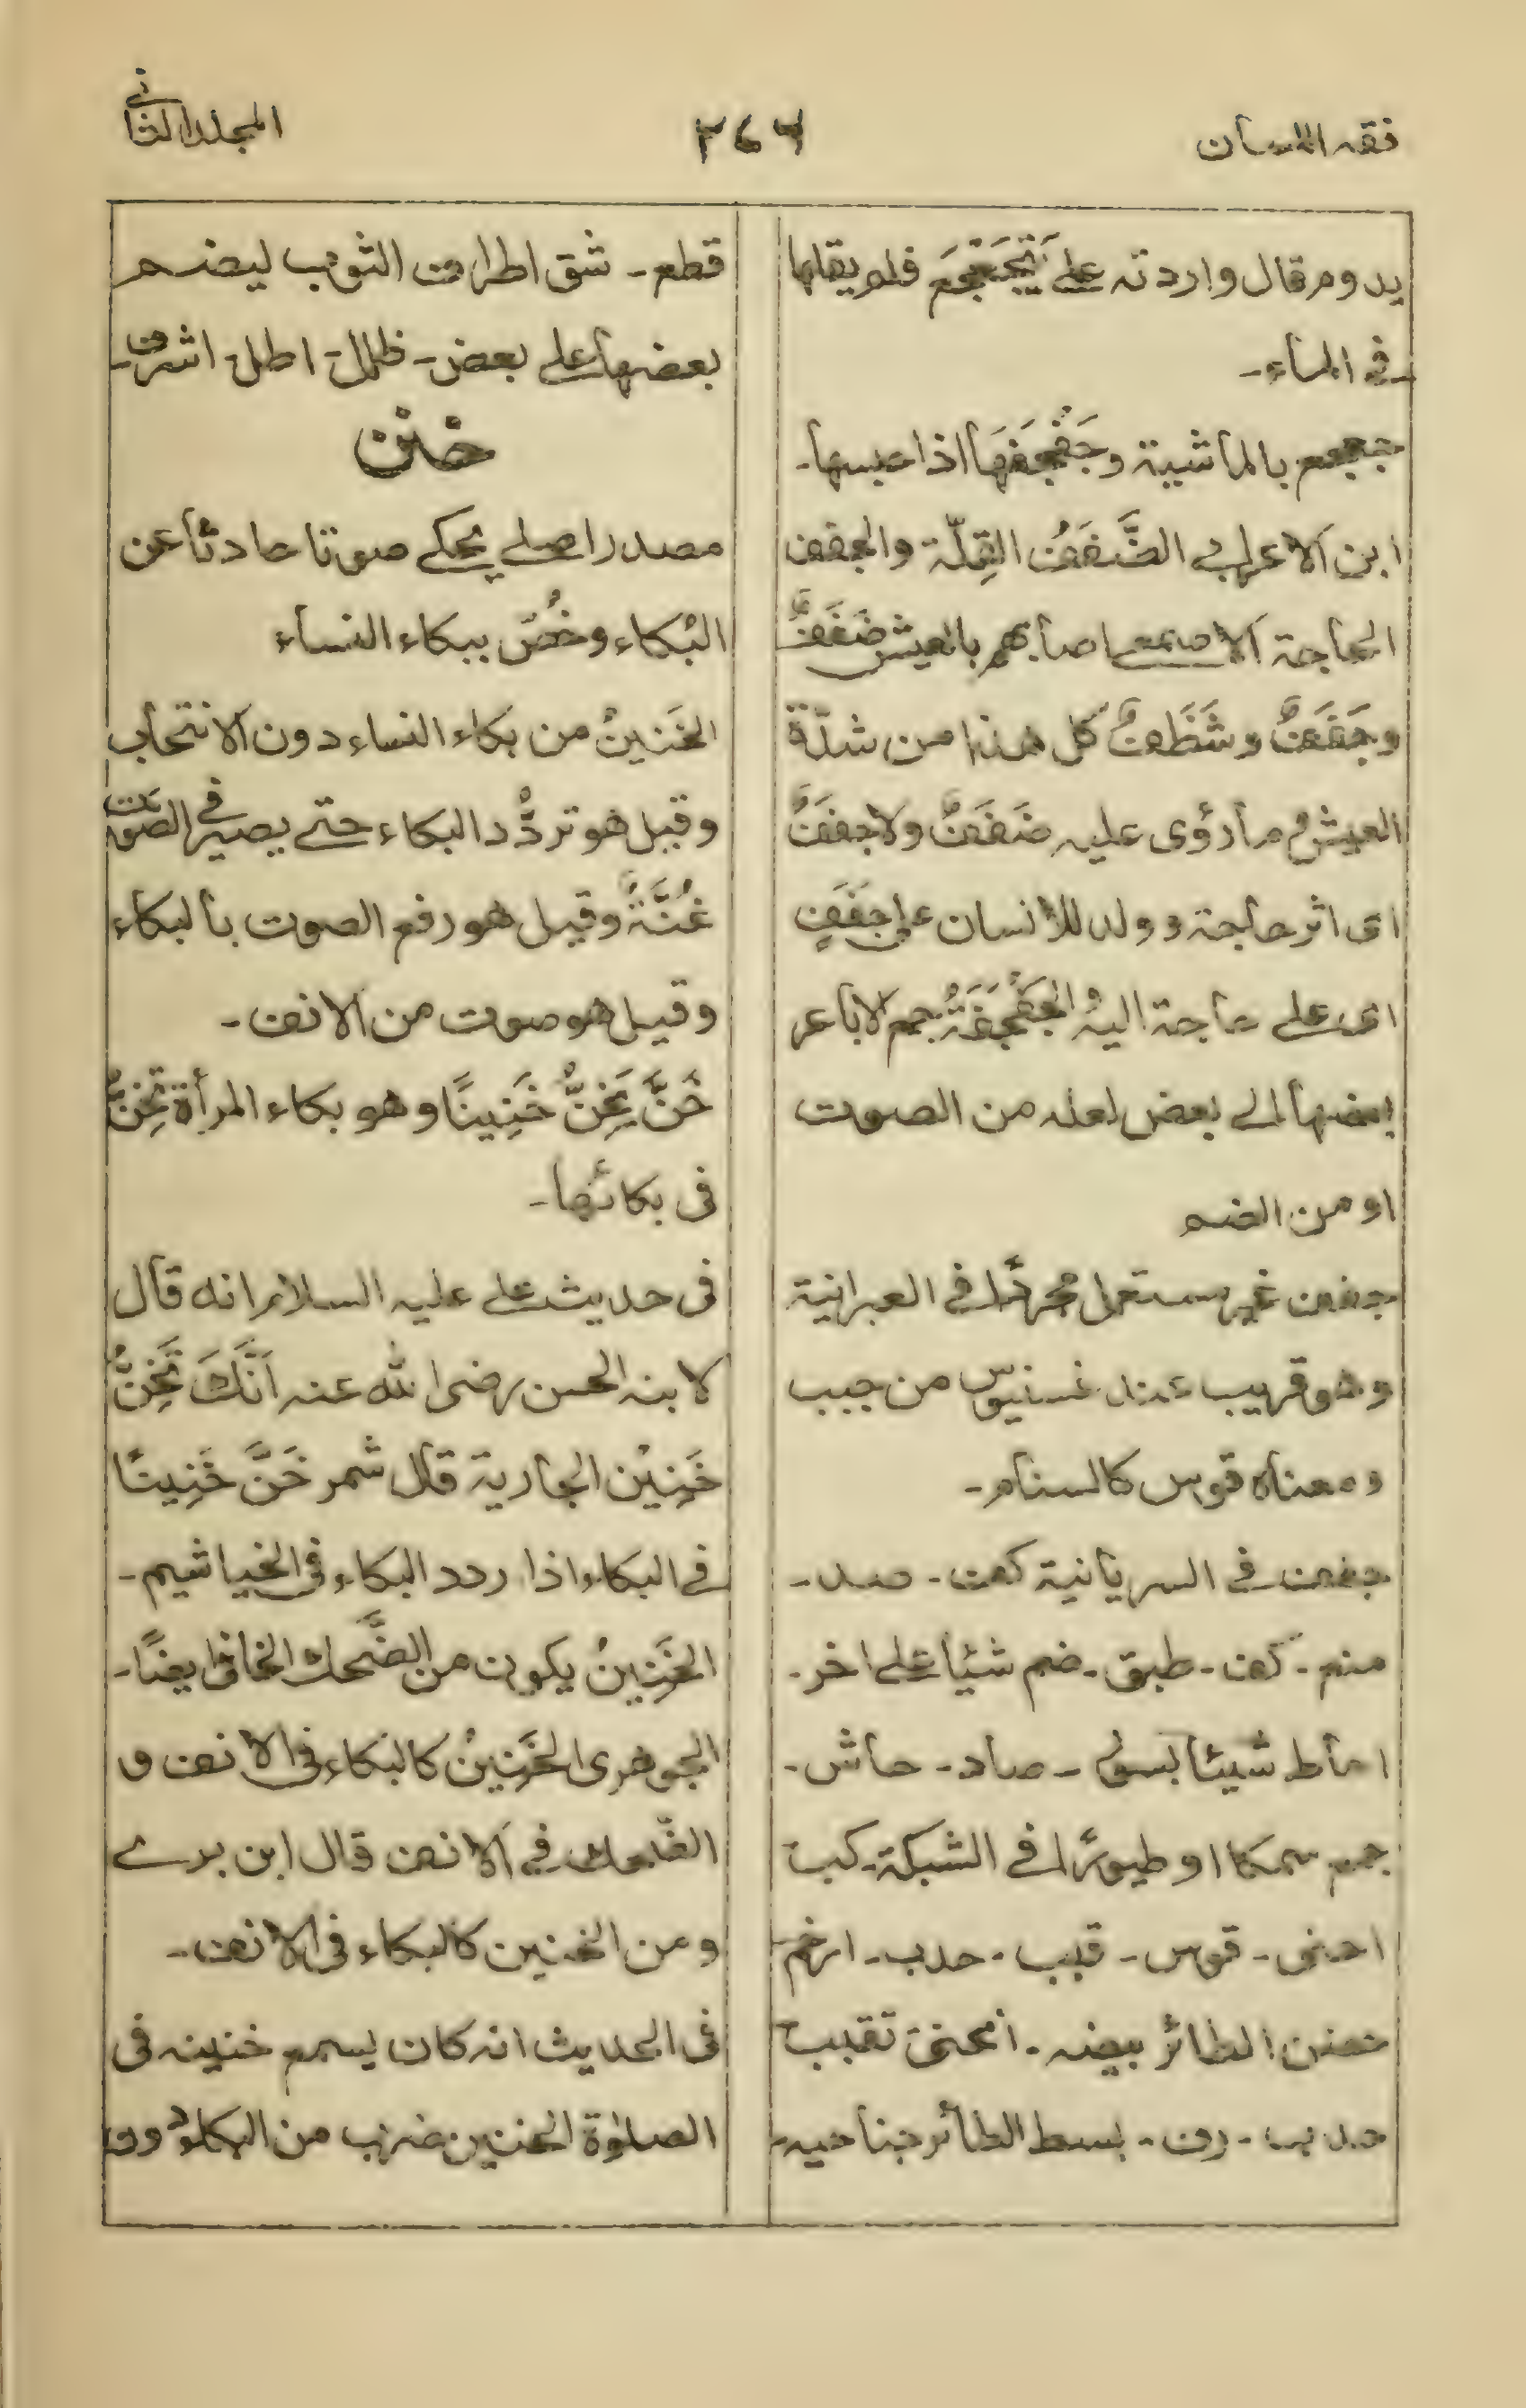 فقہ اللسان
٢٤٦
المجلد الثانی
يدوم قال واردتہ علے فلم يقلها
فی الماء۔
جعجع بالماشیۃ وجَفْجَفَهَا اذا حبسها۔
ابن الاعرابے الضَّفَفُ القِلّۃ والجفف
الحاجۃ الاصمعے اصابهم بالعیش ضَفَفٌ
وجَفَفٌ وشَظَفٌ کل هذا من شدّۃ
العیش ما رؤی علیہ ضَفَفٌ ولا جفَفٌ
ای اثر حاجۃ و ولد للانسان علی جَفَفٍ
ای علے حاجۃ الیہ الجَفْجَفَۃُ جمع الاباعر
بعضها الے بعض لعلہ من الصوت
او من الضم
جفف غیر مستعمل مجردًا فی العبرانیۃ
وهو قریب عند غسنیوس من جبب
ومعناہ قوس کالسنام۔
جفف فے السریانیۃ کف۔ صد۔
منع۔ کف۔ طبق۔ ضم شیئا علے اخر۔
اماط شیئا بسوء۔ صاد۔ حاش۔
جمع سمکا او طیورًا فے الشبکۃ۔ کبب
احنی۔ قوس۔ قبب۔ حدب۔ ارخم
حضن الطائر بیضہ۔ انحنی تقبب
حدب۔ رف۔ بسط الطائر جناحیہ۔
قطع۔ شق اطراف الثوب لیضم
بعضها علے بعض۔ ظلل۔ اطل۔ اشرف۔
خنن
مصدر اصلے یحکے صوتا حادثا عن
البُکاء وخُصّ ببکاء النساء
الخَنینُ من بکاء النساء دون الانتحاب
وقیل هو تردُّد البکاء حتے یصیر فی الصوت
غُنَّۃٌ وقیل هو رفع الصوت بالبکاء
وقیل هو صوت من الانف۔
خَنَّ یَخِنُّ خَنِینًا وهو بکاء المرأۃ تَخِنُّ
فی بکائها۔
فی حدیث علے علیہ السلام انه قال
لابنہ الحسن رضی اللہ عنہ اَنَّكَ تَخِنُّ
خَنِیْنَ الجاریۃ قال شمر خَنَّ خَنِینًا
فے البکاء اذا ردد البکاء فی الخیاشیم۔
الخَنِینُ یکون من الضَّحك الخافی ایضًا۔
الجوهری الخَنِینُ کالبکاء فی الانف و
الضّحك فی الانف قال ابن برے
ومن الخنین کالبکاء فی الانف۔
فی الحدیث انہ کان یسمع خنینہ فی
الصلوٰۃ الخنین ضرب من البکاء دون